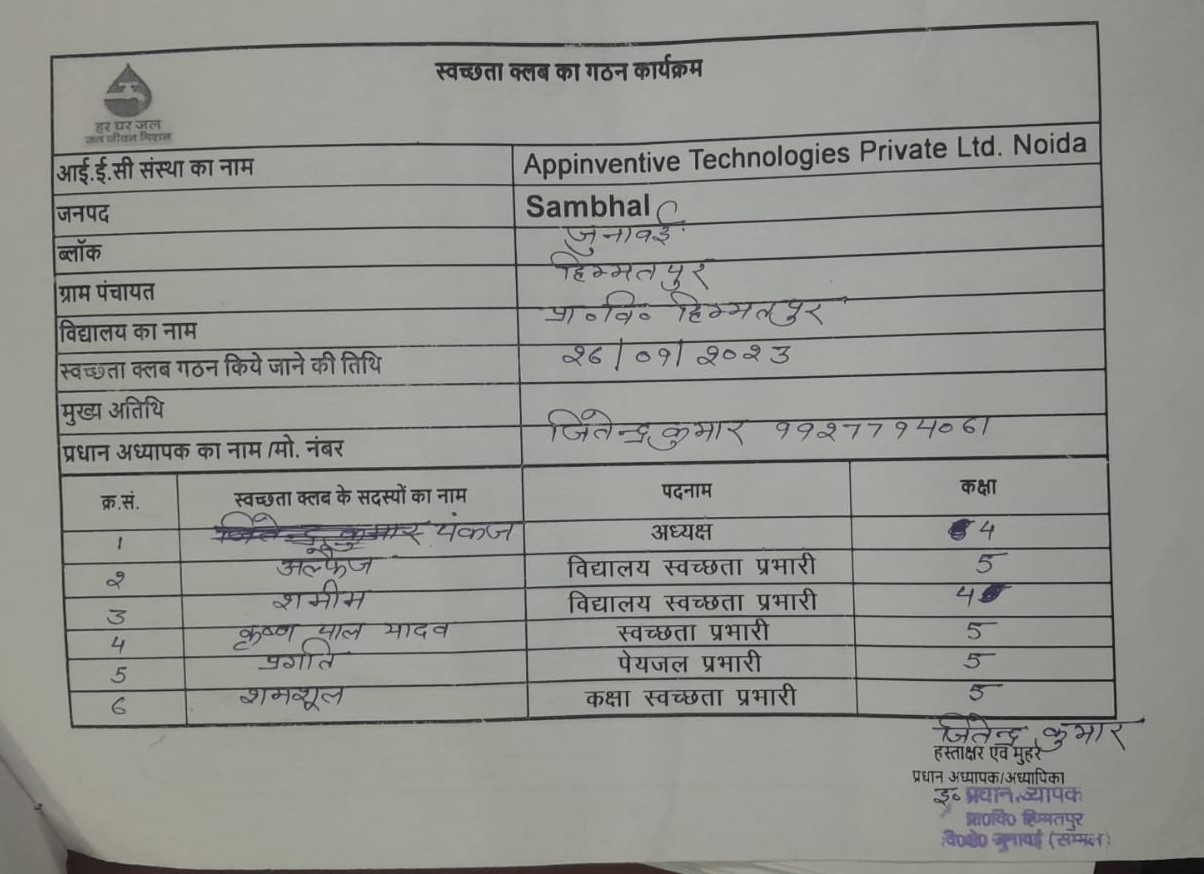 स्वच्छता क्लब का गठन कार्यक्रम
हर घर जल
जल जीवन मिशन
आई.ई.सी संस्था का नाम Appinventive Technologies Private Ltd. Noida
जनपद Sambhal
ब्लॉक जुनावई
ग्राम पंचायत हिम्मतपुर
विद्यालय का नाम प्रा०वि० हिम्मतपुर
स्वच्छता क्लब गठन किये जाने की तिथि २6/०9/२०२3
मुख्य अतिथि
प्रधान अध्यापक का नाम /मो. नंबर जितेन्द्र कुमार
क्र.सं. स्वच्छता क्लब के सदस्यों का नाम पदनाम कक्षा
1 पंकज अध्यक्ष 4
२ अल्फैज विद्यालय स्वच्छता प्रभारी 5
3 शमीम विद्यालय स्वच्छता प्रभारी 4
4 कृष्ण पाल यादव स्वच्छता प्रभारी 5
5 प्रगति पेयजल प्रभारी 5
6 शमशूल कक्षा स्वच्छता प्रभारी 5
जितेन्द्र कुमार
हस्ताक्षर एवं मुहर
प्रधान अध्यापक/अध्यापिका
इ० प्रधानाध्यापक
प्रा०वि० हिम्मतपुर
वि०क्षे० जुनावई (सम्भल)